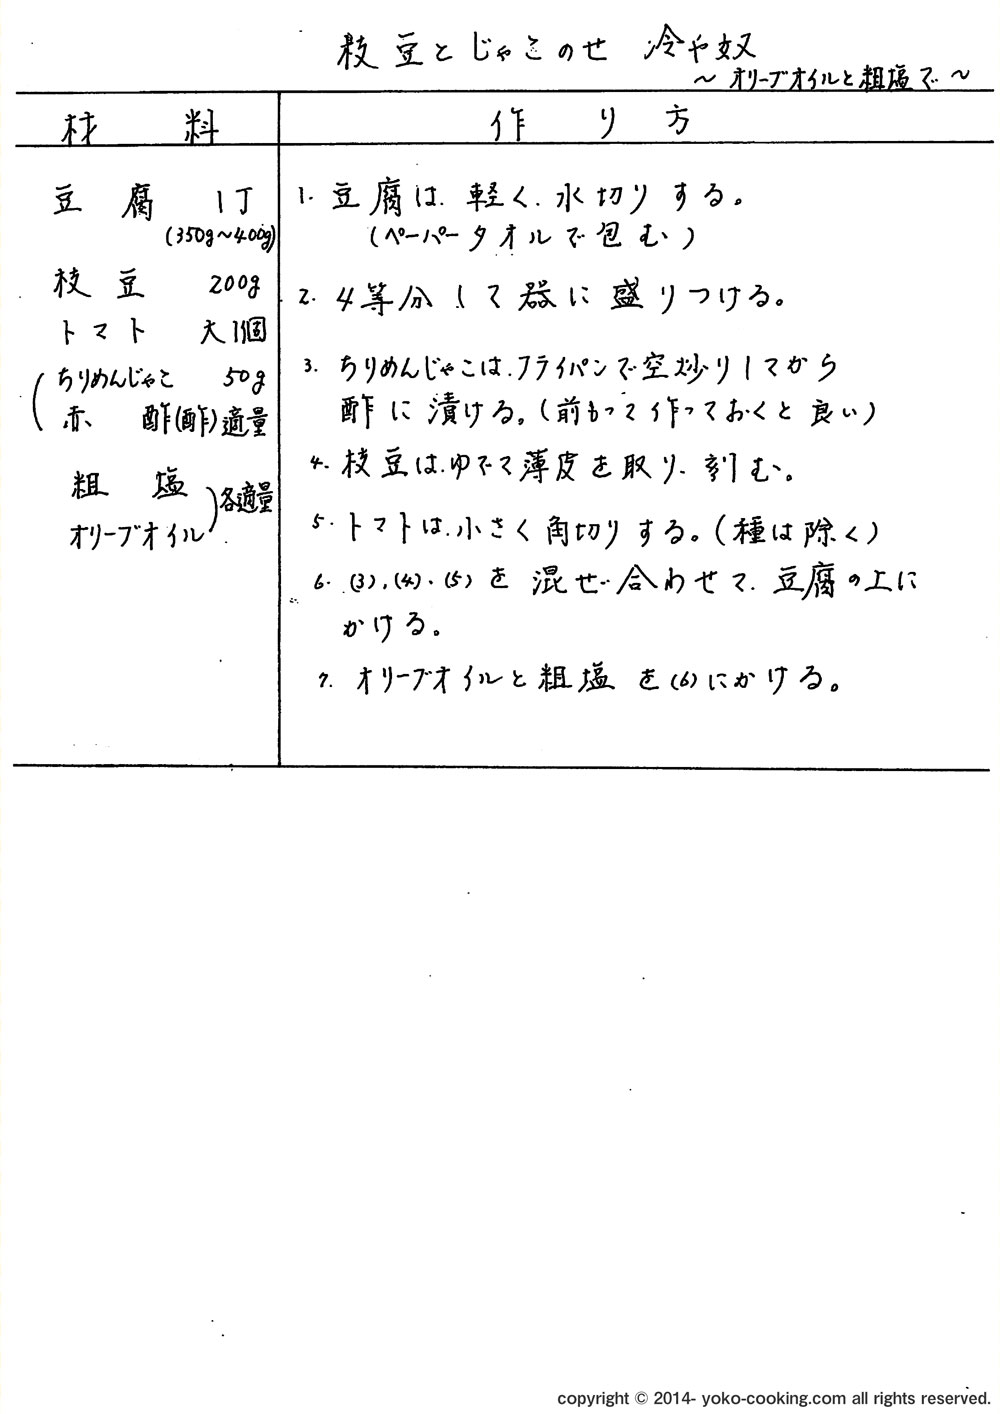 枝豆とじゃこのせ 冷や奴
～オリーブオイルと粗塩で～
材料
作り方
豆腐 1丁
(350g～400g)
枝豆 200g
トマト 大1個
ちりめんじゃこ 50g
赤酢(酢)適量
粗塩
オリーブオイル
各適量
1. 豆腐は、軽く、水切りする。
(ペーパータオルで包む)
2. 4等分して器に盛りつける。
3. ちりめんじゃこは、フライパンで空炒りしてから
酢に漬ける。(前もって作っておくと良い)
4. 枝豆は、ゆでて薄皮を取り、刻む。
5. トマトは、小さく角切りする。(種は除く)
6. (3)、(4)、(5)を混ぜ合わせて、豆腐の上に
かける。
7. オリーブオイルと粗塩を(6)にかける。
copyright © 2014- yoko-cooking.com all rights reserved.